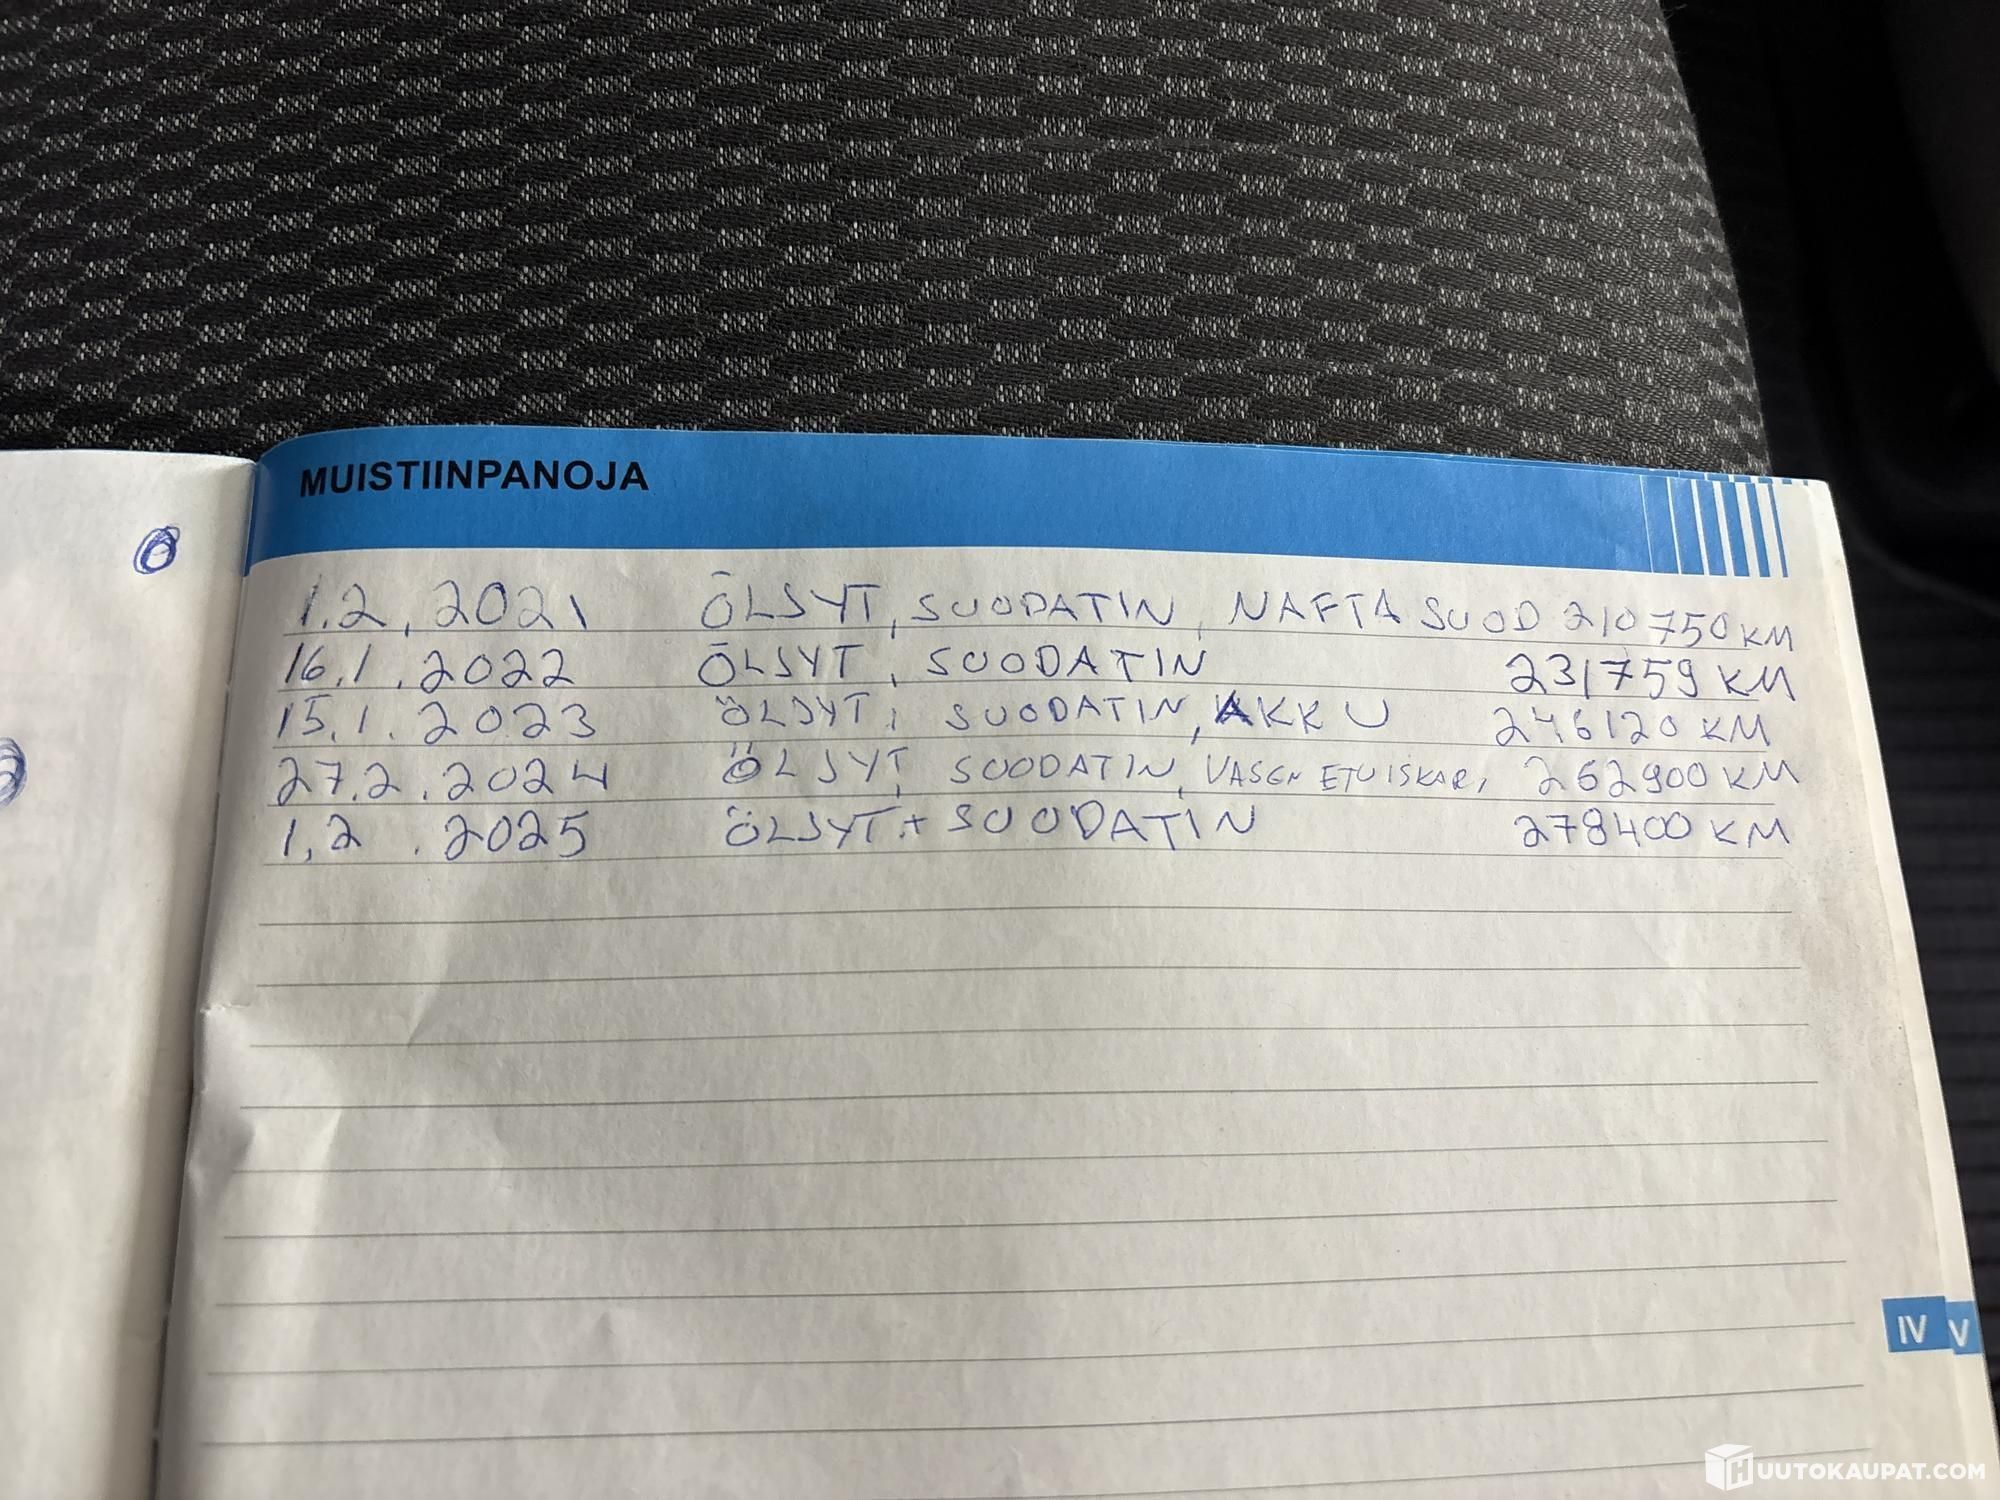 MUISTIINPANOJA
1.2.2021 ÖLJYT, SUODATIN, NAFTA SUOD 210750 KM
16.1.2022 ÖLJYT, SUODATIN 231759 KM
15.1.2023 ÖLJYT, SUODATIN, AKKU 246120 KM
27.2.2024 ÖLJYT, SUODATIN, VASEN ETUISKAR, 262900 KM
1.2.2025 ÖLJYT + SUODATIN 278400 KM
IV V
HUUTOKAUPAT.COM